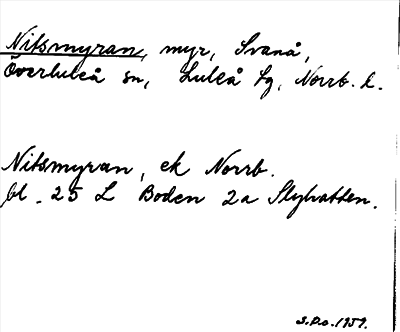 Nitsmyran, myr, Svanå,
Överluleå sn, Luleå tg, Norrb. l.
Nitsmyran, ek Norrb.
bl. 25 L Boden 2a Slyhatten.
S.Po. 1959.